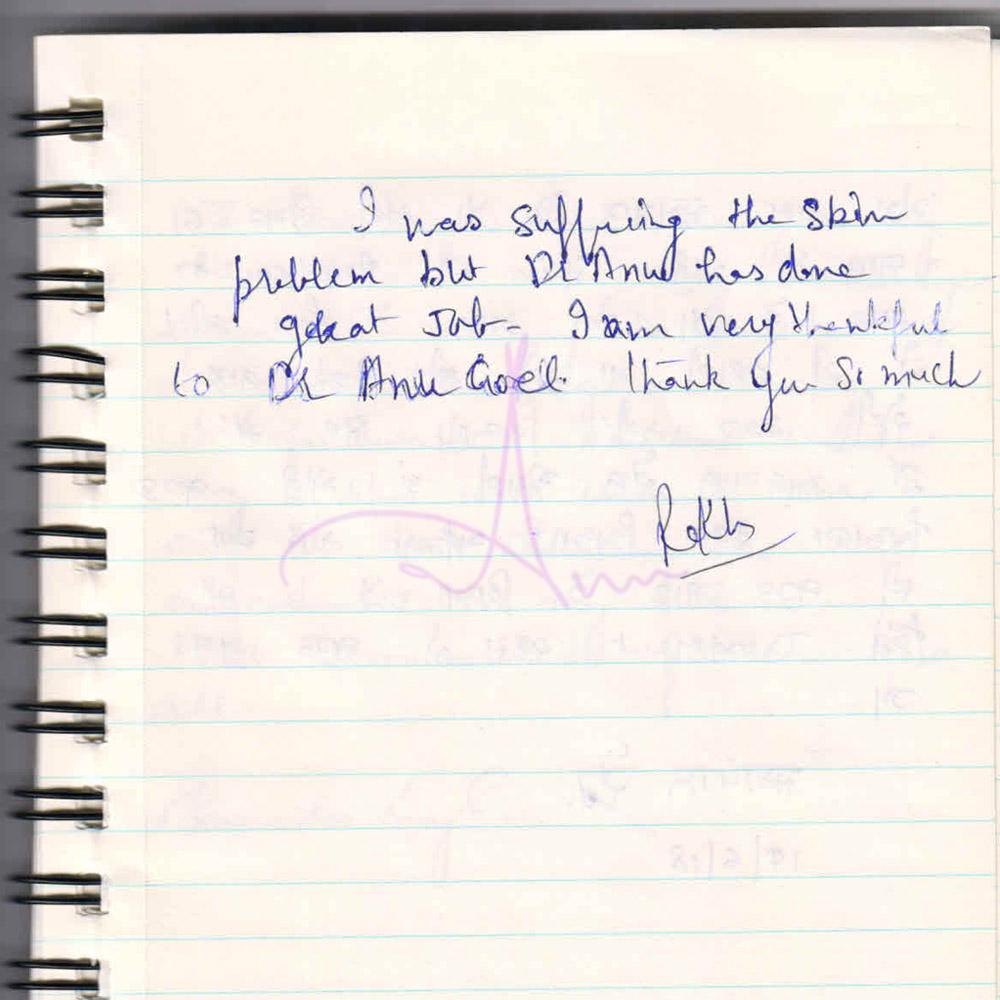 I was suffring the skin
problem but Dr Anu has done
great Job - I am very thankful
to Dr Anu Goel. Thank you So much